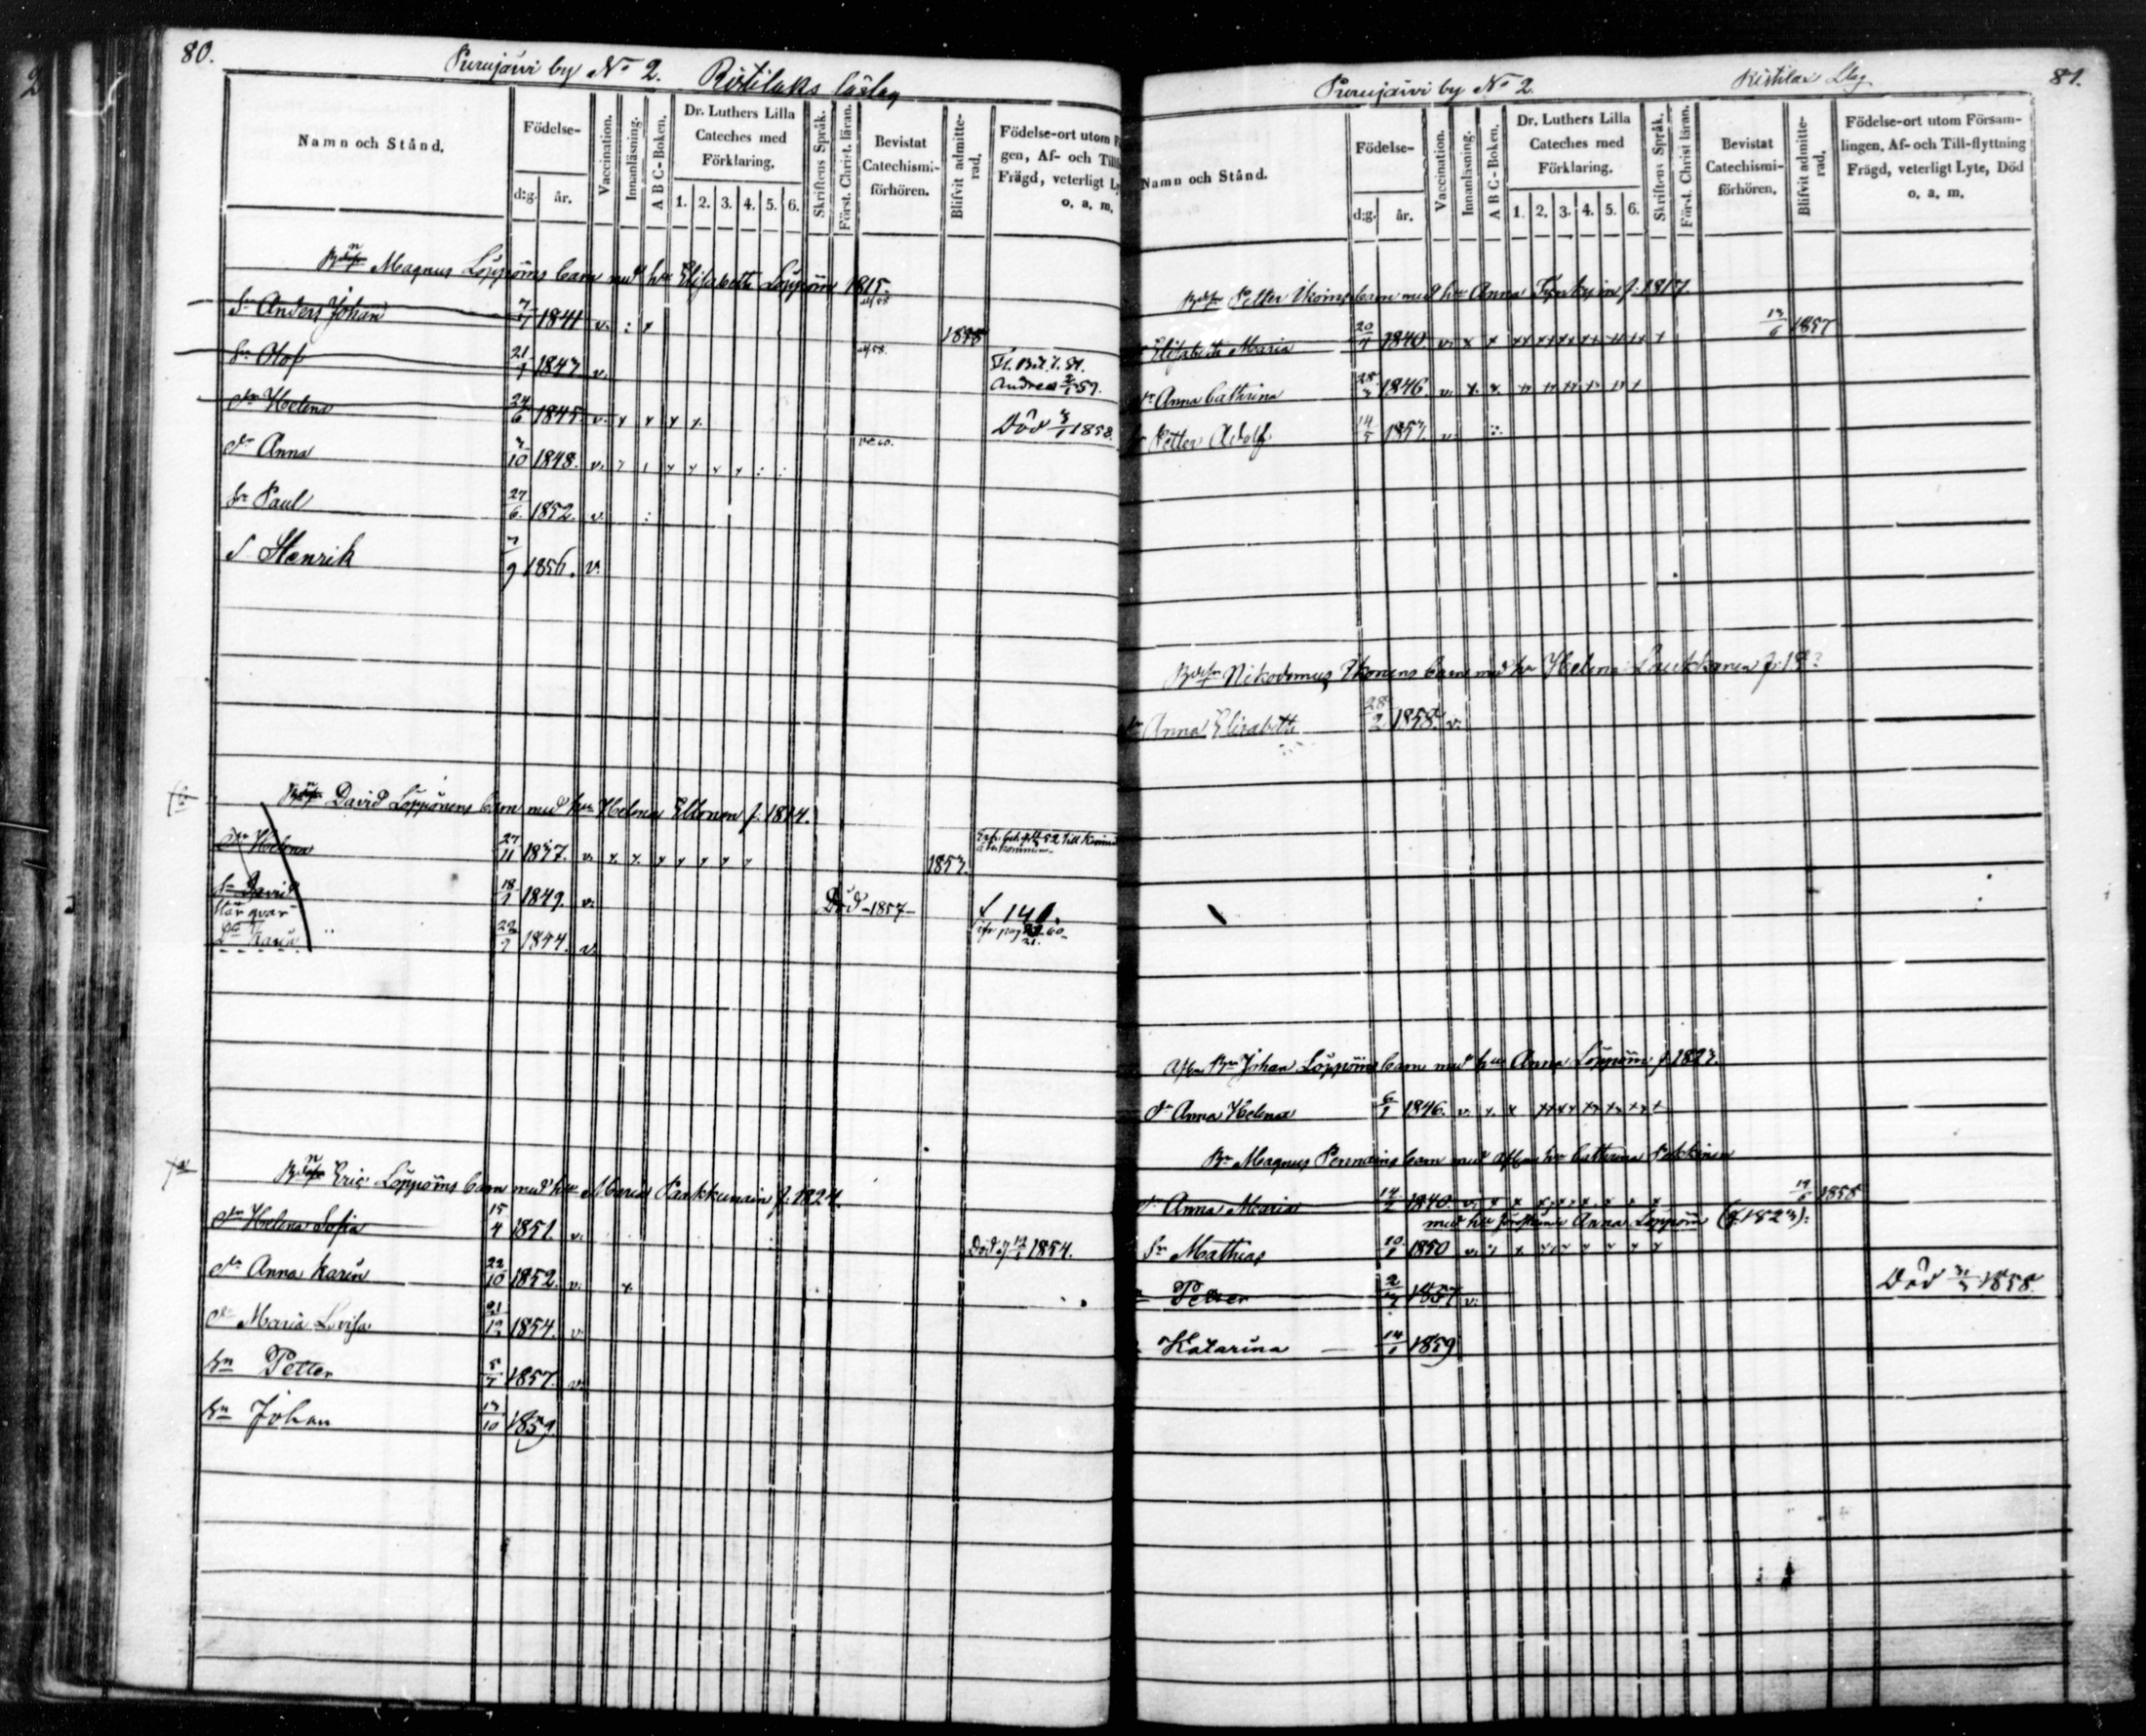 80.
Purujärvi by No 2. Ristilaks läslag
Namn och Stånd.
Födelse-
d:g.
år.
Vaccination.
Innanläsning.
A B C-Boken.
Dr. Luthers Lilla
Cateches med
Förklaring.
1. 2. 3. 4. 5. 6.
Skriftens Språk.
Först. Christ. läran.
Bevistat
Catechismi-
förhören.
Blifvit admitte-
rad.
Födelse-ort utom F
gen, Af- och Till
Frägd, veterligt Ly
o. a. m.
Magnus Löppöins barn med hu Elisabeth Löppöin 1815.
Sn Anders Johan 7/7 1841 v. : x
Sn Olof 21/9 1843 v.
Andreæ
dr Helena 24/6 1845. v. x x x x
Död 3/1 1858.
dr Anna 3/10 1848. v.
Sn Paul 27/6 1852. v. :
S Henrik 7/9 1856. v.
David Löppönens barn med hu Helena Ellonen f. 1814.
dr Helena 27/11 1837. v. x. x. x x x x x 1853.
Sn David 18/1 1849. v. Död 1857
står qvar
Karin 22/9 1844. v.
Eric Löppöins barn med hu Maria Paakkunain f. 1824.
dr Helena Sofia 15/4 1851. v. 1854.
dr Anna Karin 22/10 1852. v. x
dr Maria Lovisa 21/12 1854. v.
Sn Petter 5/7 1857. v.
Sn Johan 13/10 1859.
81.
Purujärvi by No 2. Ristilax Llag
Namn och Stånd.
Födelse-
d:g.
år.
Vaccination.
Innanläsning.
A B C-Boken.
Dr. Luthers Lilla
Cateches med
Förklaring.
1. 2. 3. 4. 5. 6.
Skriftens Språk.
Först. Christ läran.
Bevistat
Catechismi-
förhören.
Blifvit admitte-
rad.
Födelse-ort utom Försam-
lingen, Af- och Till-flyttning
Frägd, veterligt Lyte, Död
o. a. m.
Petter Ikoins barn med hu Anna f. 1817.
Elisabeth Maria 20/4 1840. v. x x 1857
dr Anna Cathrina 28/3 1846. v. x. x.
Petter Adolf 14/5 1853. v.
Nikodemus Ikonens barn med hu Helena Laukkanen f. 18?
Anna Elisabeth 28/2 1858. v.
Johan Löppöins barn med hu Anna Löppöin f. 1823.
dr Anna Helena 6/1 1846. v. x. x
Magnus Pennains barn med hu Cathrina Pekkinen
dr Anna Maria 14/2 1840. v. x x 1858
med hu Anna Löppöin (f. 1823):
Sn Mathias 20/1 1850 v.
Petter 2/7 1857 v. Död 1858.
Katarina 14/1 1859